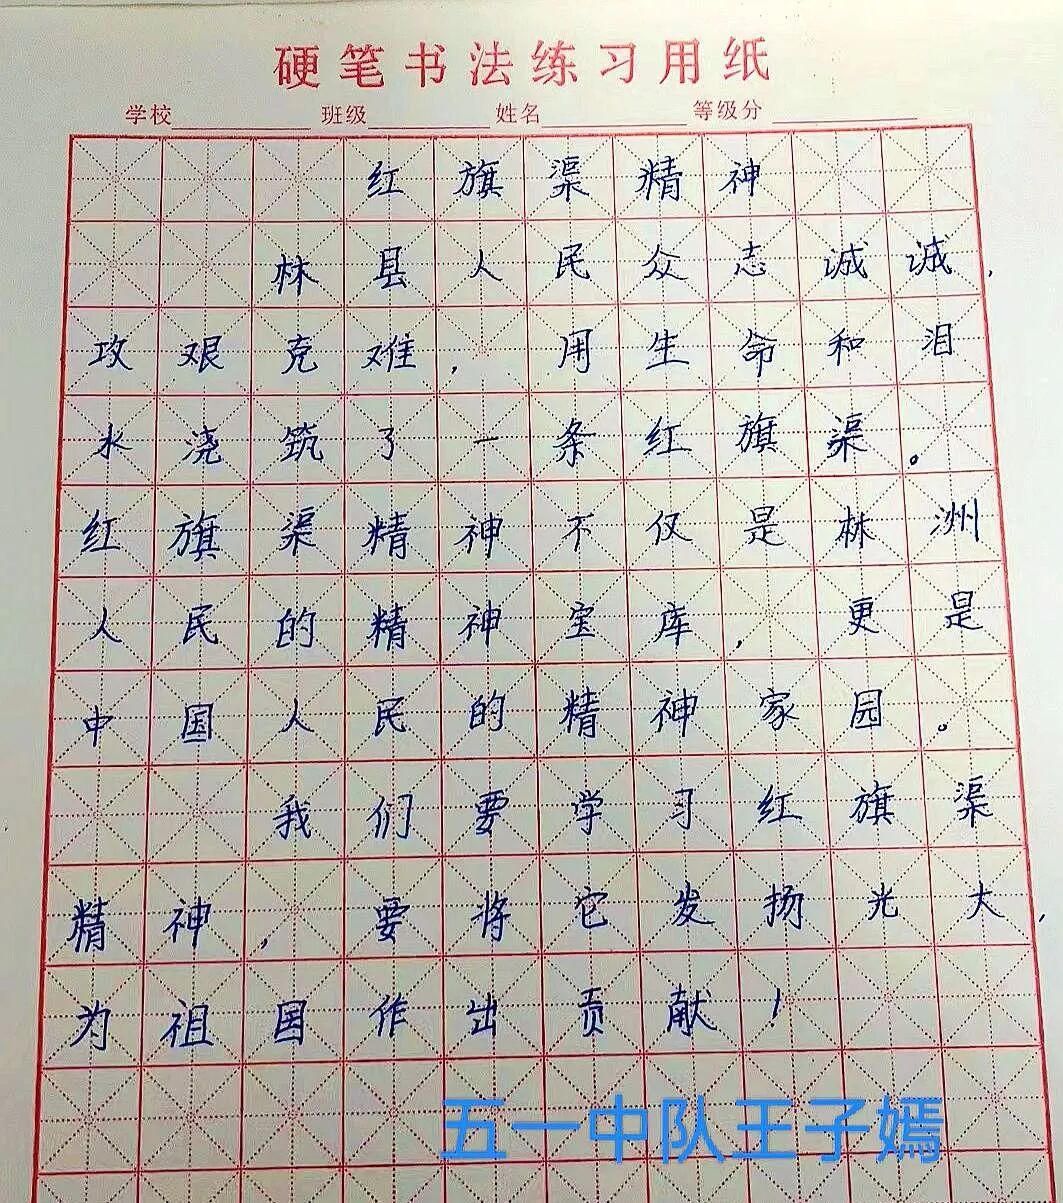 硬笔书法练习用纸
学校 班级 姓名 等级分
红旗渠精神
林县人民众志诚诚，
攻艰克难，用生命和泪
水浇筑了一条红旗渠。
红旗渠精神不仅是林洲
人民的精神宝库，更是
中国人民的精神家园。
我们要学习红旗渠
精神，要将它发扬光大，
为祖国作出贡献！
五一中队王子嫣